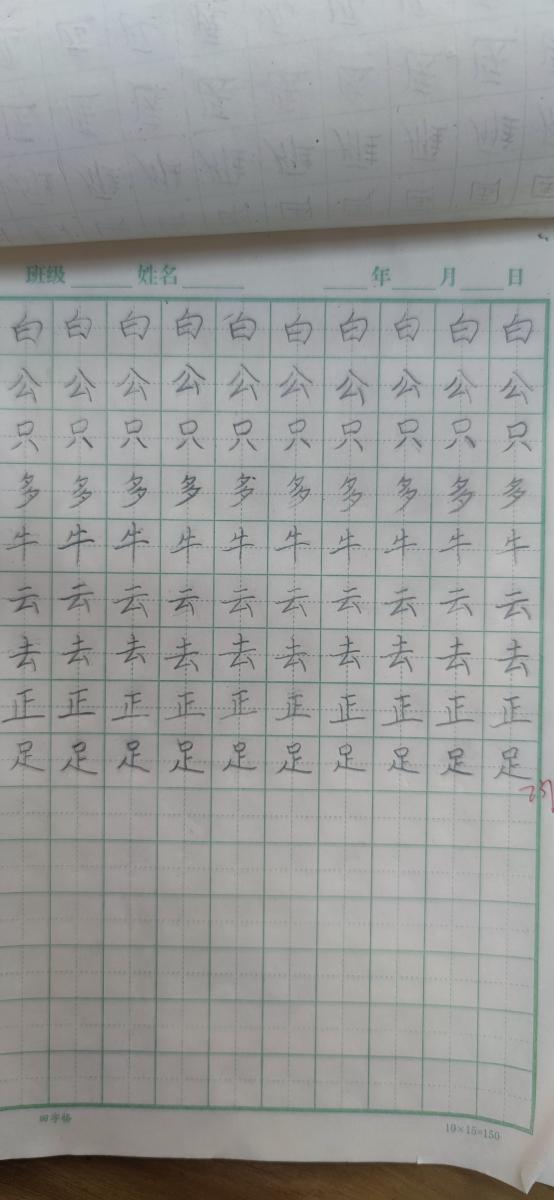 班级 姓名 年 月 日
白白白白白白白白白白
公公公公公公公公公公
只只只只只只只只只只
多多多多多多多多多多
牛牛牛牛牛牛牛牛牛牛
云云云云云云云云云云
去去去去去去去去去去
正正正正正正正正正正
足足足足足足足足足足
田字格 10×15=150